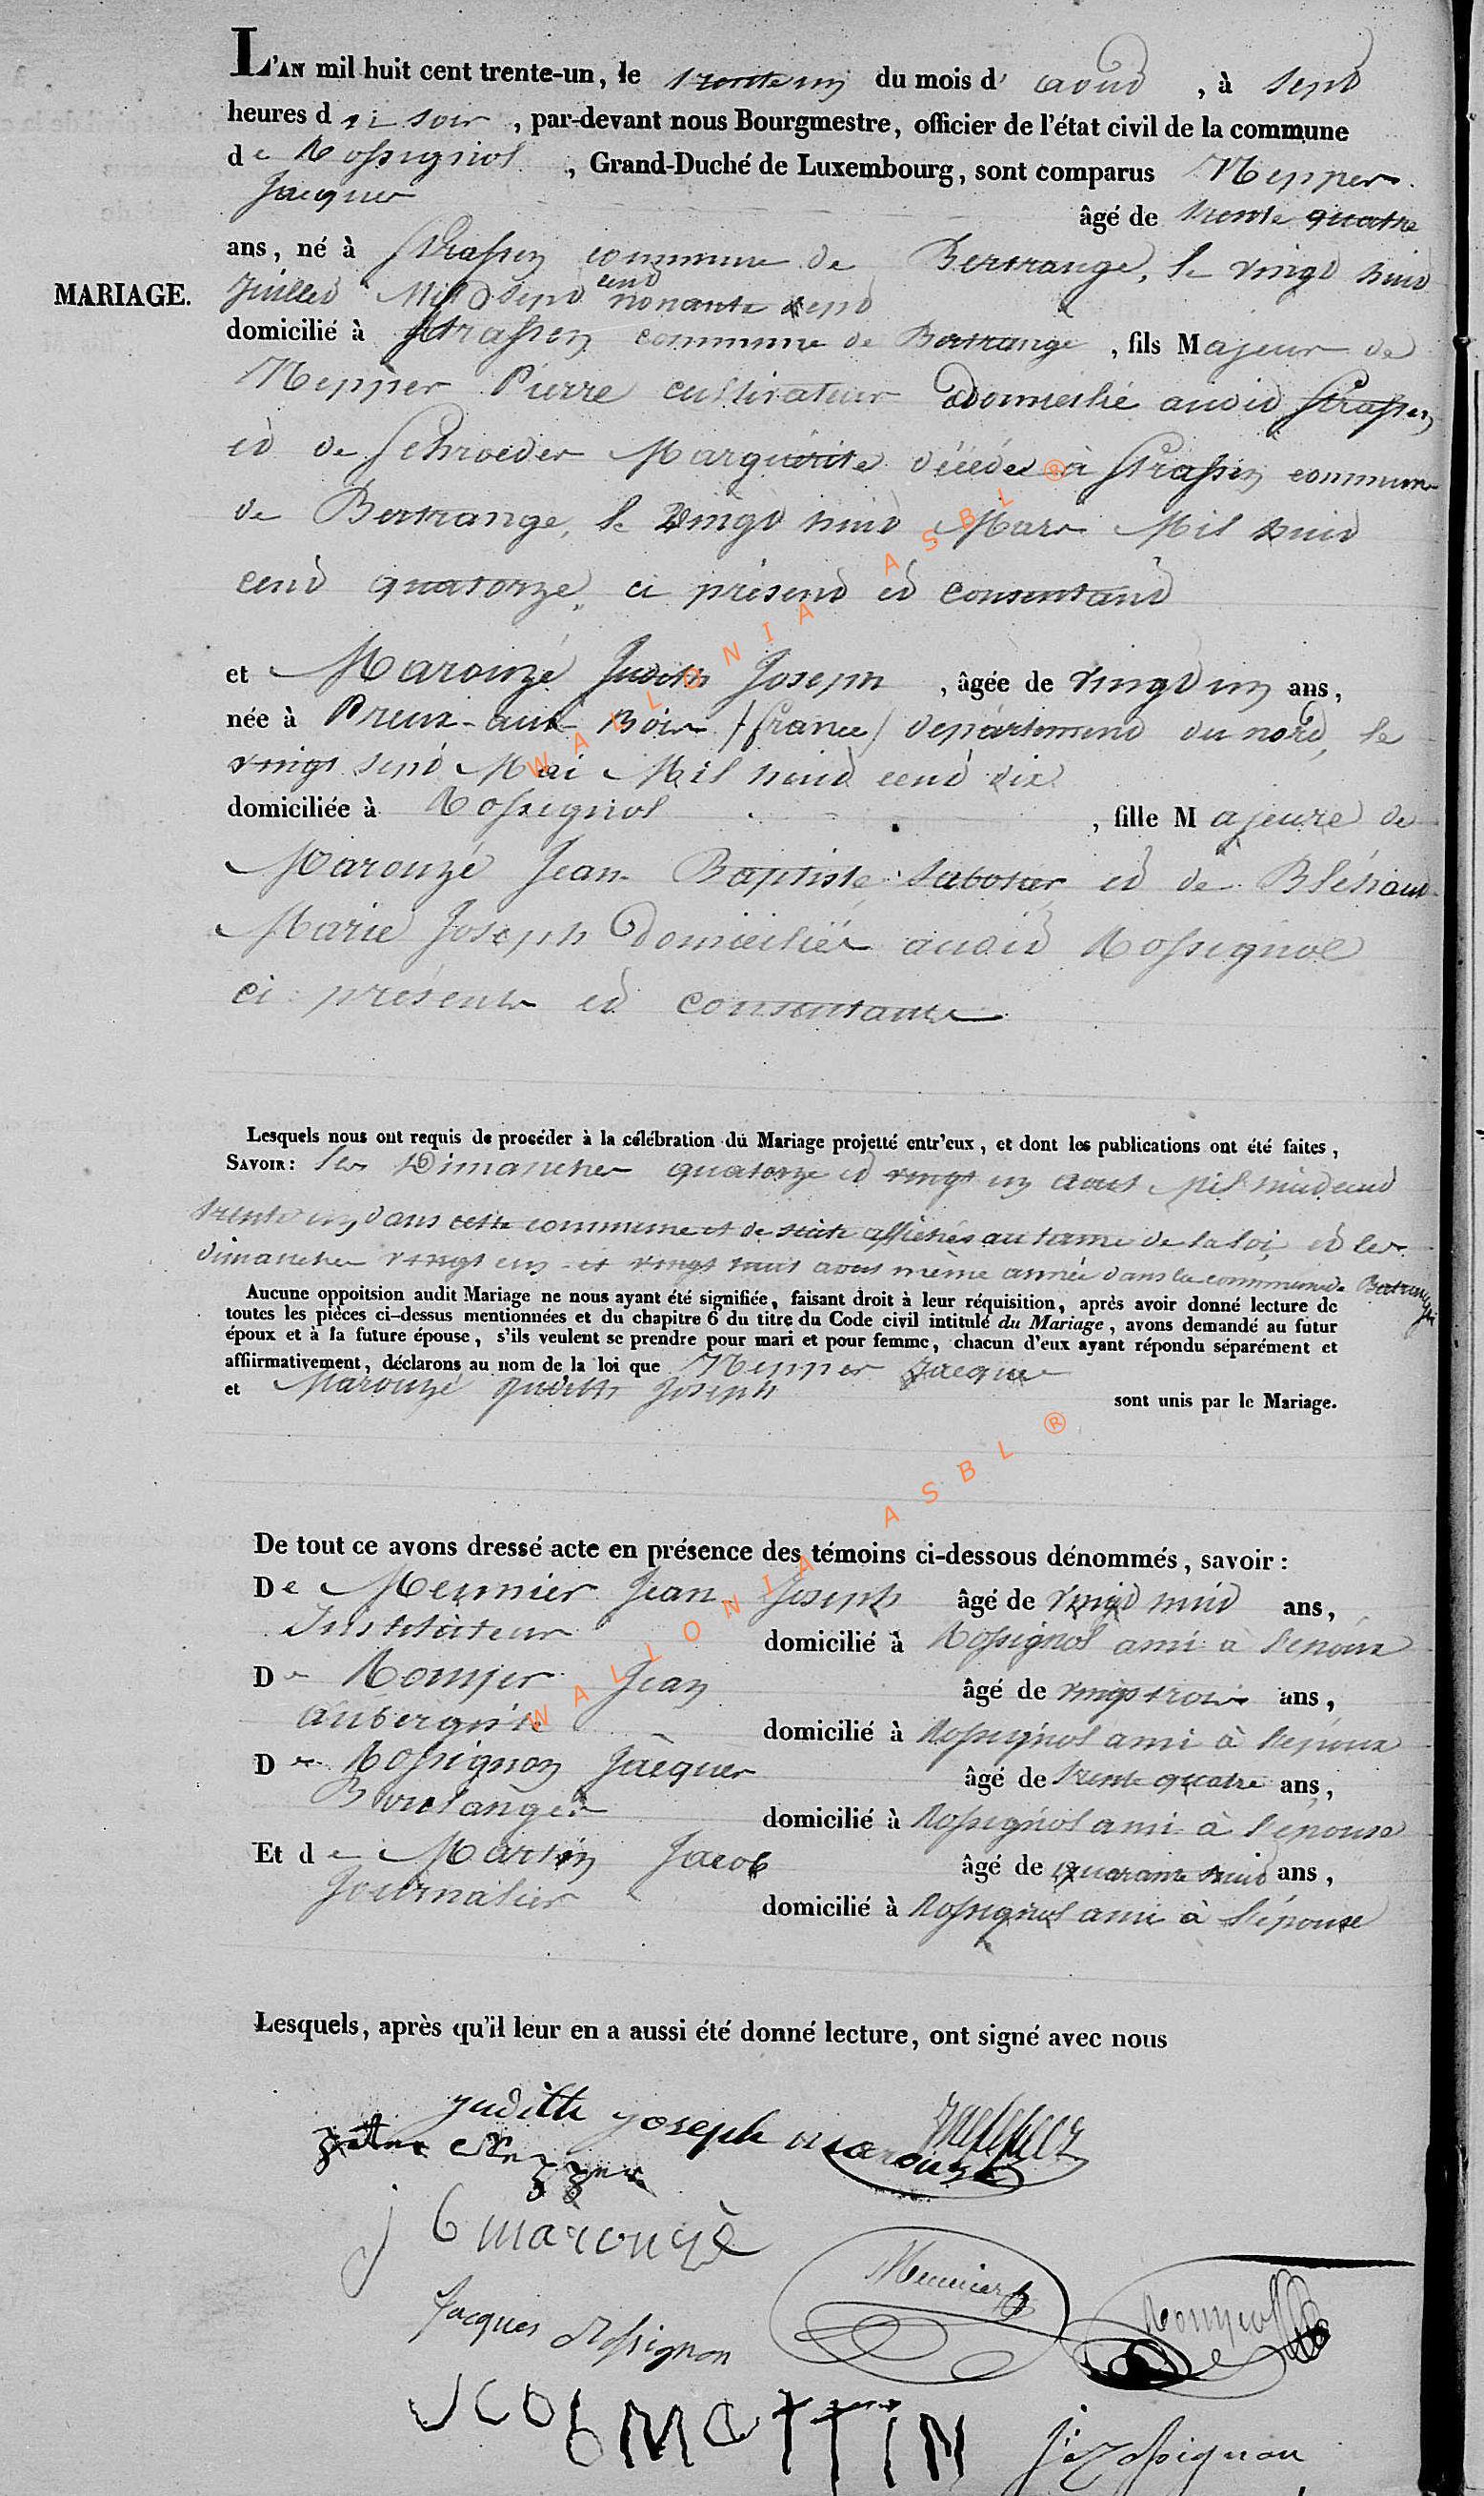 L'AN mil huit cent trente-un, le trente un du mois d' aout, à sept
heures du soir, par-devant nous Bourgmestre, officier de l'état civil de la commune
de Rossignol, Grand-Duché de Luxembourg, sont comparus Nepper
Jacques âgé de trente quatre
ans, né à Strassen commune de Bertrange, le vingt huit
MARIAGE.
juillet Mil sept cent nonante sept
domicilié à Strassen commune de Bertrange, fils Majeur de
Nepper Pierre cultivateur domicilié audit Strassen
et de Schroeder Marguérite décédée à Strassen commune
de Bertrange, le vingt huit Mars Mil huit
cent quatorze, ci présent et consentant
et Marouzé Judith Joseph, âgée de vingt un ans,
née à Preux-aux-Bois /france/ département du nord, le
vingt sept Mai Mil huit cent dix
domiciliée à Rossignol, fille Majeure de
Marouzé Jean Baptiste sabotier et de Bléhaut
Marie Joseph domiciliés audit Rossignol
ci présents et consentants
Lesquels nous ont requis de procéder à la célébration du Mariage projetté entr'eux, et dont les publications ont été faites,
SAVOIR: les Dimanches quatorze et vingt un aout Mil huit cent
trente un dans cette commune et de suite affichés au terme de la loi, et les
dimanches vingt un et vingt huit aout même année dans la commune de Bertrange
Aucune oppoitsion audit Mariage ne nous ayant été signifiée, faisant droit à leur réquisition, après avoir donné lecture de
toutes les pièces ci-dessus mentionnées et du chapitre 6 du titre du Code civil intitulé du Mariage, avons demandé au futur
époux et à la future épouse, s'ils veulent se prendre pour mari et pour femme, chacun d'eux ayant répondu séparément et
affiirmativement, déclarons au nom de la loi que Nepper Jacques
et Marouzé Judith Joseph sont unis par le Mariage.
De tout ce avons dressé acte en présence des témoins ci-dessous dénommés, savoir:
De Meunier Jean Joseph âgé de vingt huit ans,
Instituteur domicilié à Rossignol ami à l'epoux
De Romjer Jean âgé de vingt trois ans,
aubergiste domicilié à Rossignol ami à l'époux
De Rossignon Jacques âgé de trente quatre ans,
Boulanger domicilié à Rossignol ami à l'épouse
Et de Martin Jacob âgé de quarante huit ans,
Journalier domicilié à Rossignol ami à l'épouse
Lesquels, après qu'il leur en a aussi été donné lecture, ont signé avec nous
judith joseph marouzé
Nepper
j b marouzé
Meunier
Jacques Rossignon
JCOb MaTTIN
J: Rossignon
WALLONIA ASBL ®
WALLONIA ASBL ®